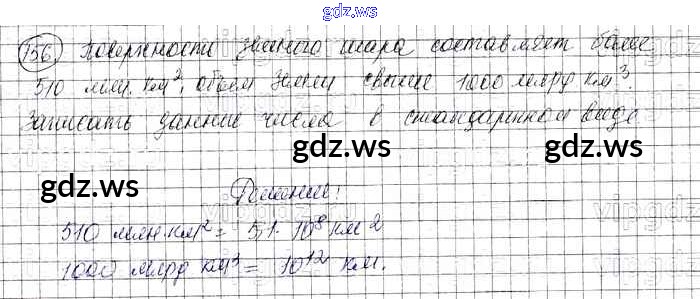 gdz.ws
156. Поверхности земного шара составляет более
510 млн. км², объем Земли свыше 1000 млрд км³.
Записать данные числа в стандартном виде
gdz.ws gdz.ws
gdz.ws
Решение:
510 млн. км² = 5,1 · 10⁸ км 2
1000 млрд км³ = 10¹² км.
gdz.ws gdz.ws